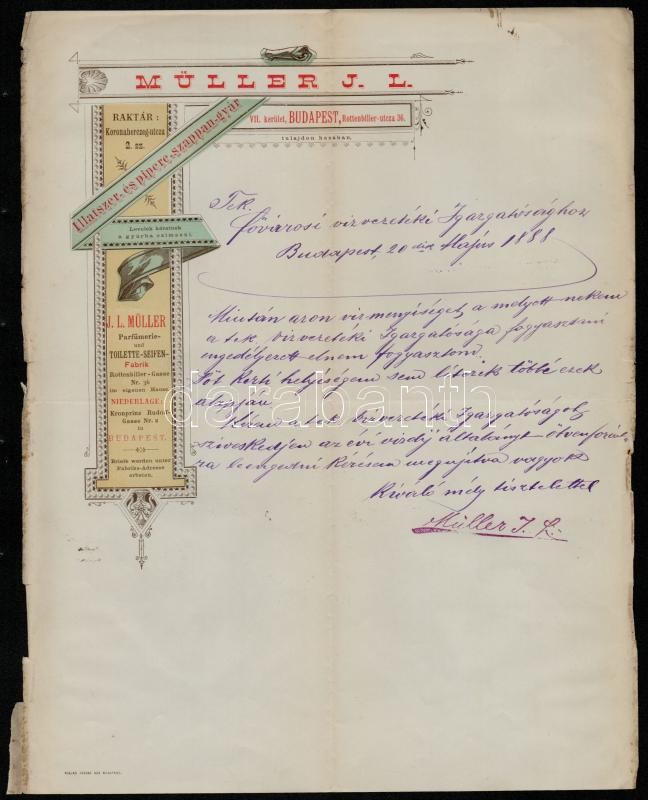 MÜLLER J. L.
VII. kerület, BUDAPEST, Rottenbiller-utcza 36.
tulajdon házában.
RAKTÁR:
Koronaherczeg-utcza
2. sz.
Illatszer- és pipere-szappan-gyár
Levelek kéretnek
a gyárba czimezni.
J. L. MÜLLER
Parfümerie-
und
TOILETTE-SEIFEN-
Fabrik
Rottenbiller-Gasse
Nr. 36
im eigenen Hause
NIEDERLAGE:
Kronprinz Rudolf-
Gasse Nr. 2
in
BUDAPEST.
Briefe werden unter
Fabriks-Adresse
erbeten.
Tek.
fővárosi vizvezetéki Igazgatósághoz
Budapest, 20 Május 1888
Miután azon viz menyiséget a melyett nekem
a tek. vizvezetéki Igazgatósága fogyasztani
engedélyezett elnem fogyasztom,
Sőt kerti helyiségem sem létezik többé ezek
alapján
Kérem a tek. vizvezetéki Igazgatóságot
sziveskedjen az évi vizdíj általányt ötven
ra leengedni kérésem megujitva vagyok
Kiváló mély tisztelettel
Müller J. L.
darabanth